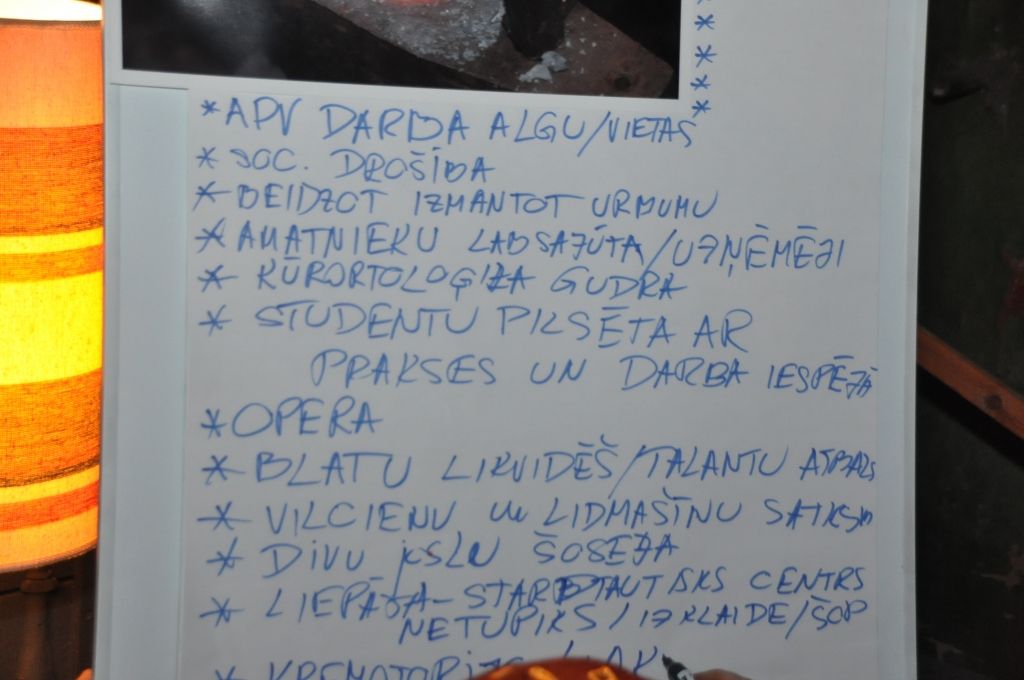 * APV DARBA ALGU/VIETAS
* SOC. DROŠĪBA
* BEIDZOT IZMANTOT URBUMU
* AMATNIEKU LABSAJŪTA/UZŅĒMĒJI
* KŪRORTOLOĢIJA GUDRA
* STUDENTU PILSĒTA AR
PRAKSES UN DARBA IESPĒJĀ
* OPERA
* BLATU LIKVIDĒŠ/TALANTU ATBALS
* VILCIENU UN LIDMAŠĪNU SATIKSM
* DIVU JOSLU ŠOSEJA
* LIEPĀJA - STARPTAUTISKS CENTRS
NETUPIKS/IZKLAIDE/ŠOP